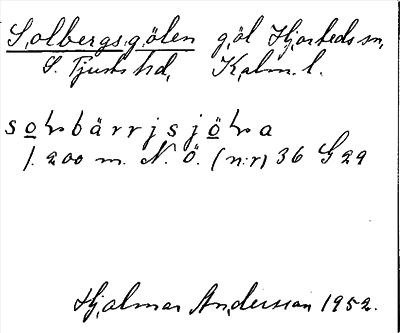 Solbergsgölen göl Hjorteds sn,
S. Tjusts hd, Kalm. l.
solbärrjsjöla
1.200 m. N. Ö. (n:r) 36 G 29
Hjalmar Andersson 1952.